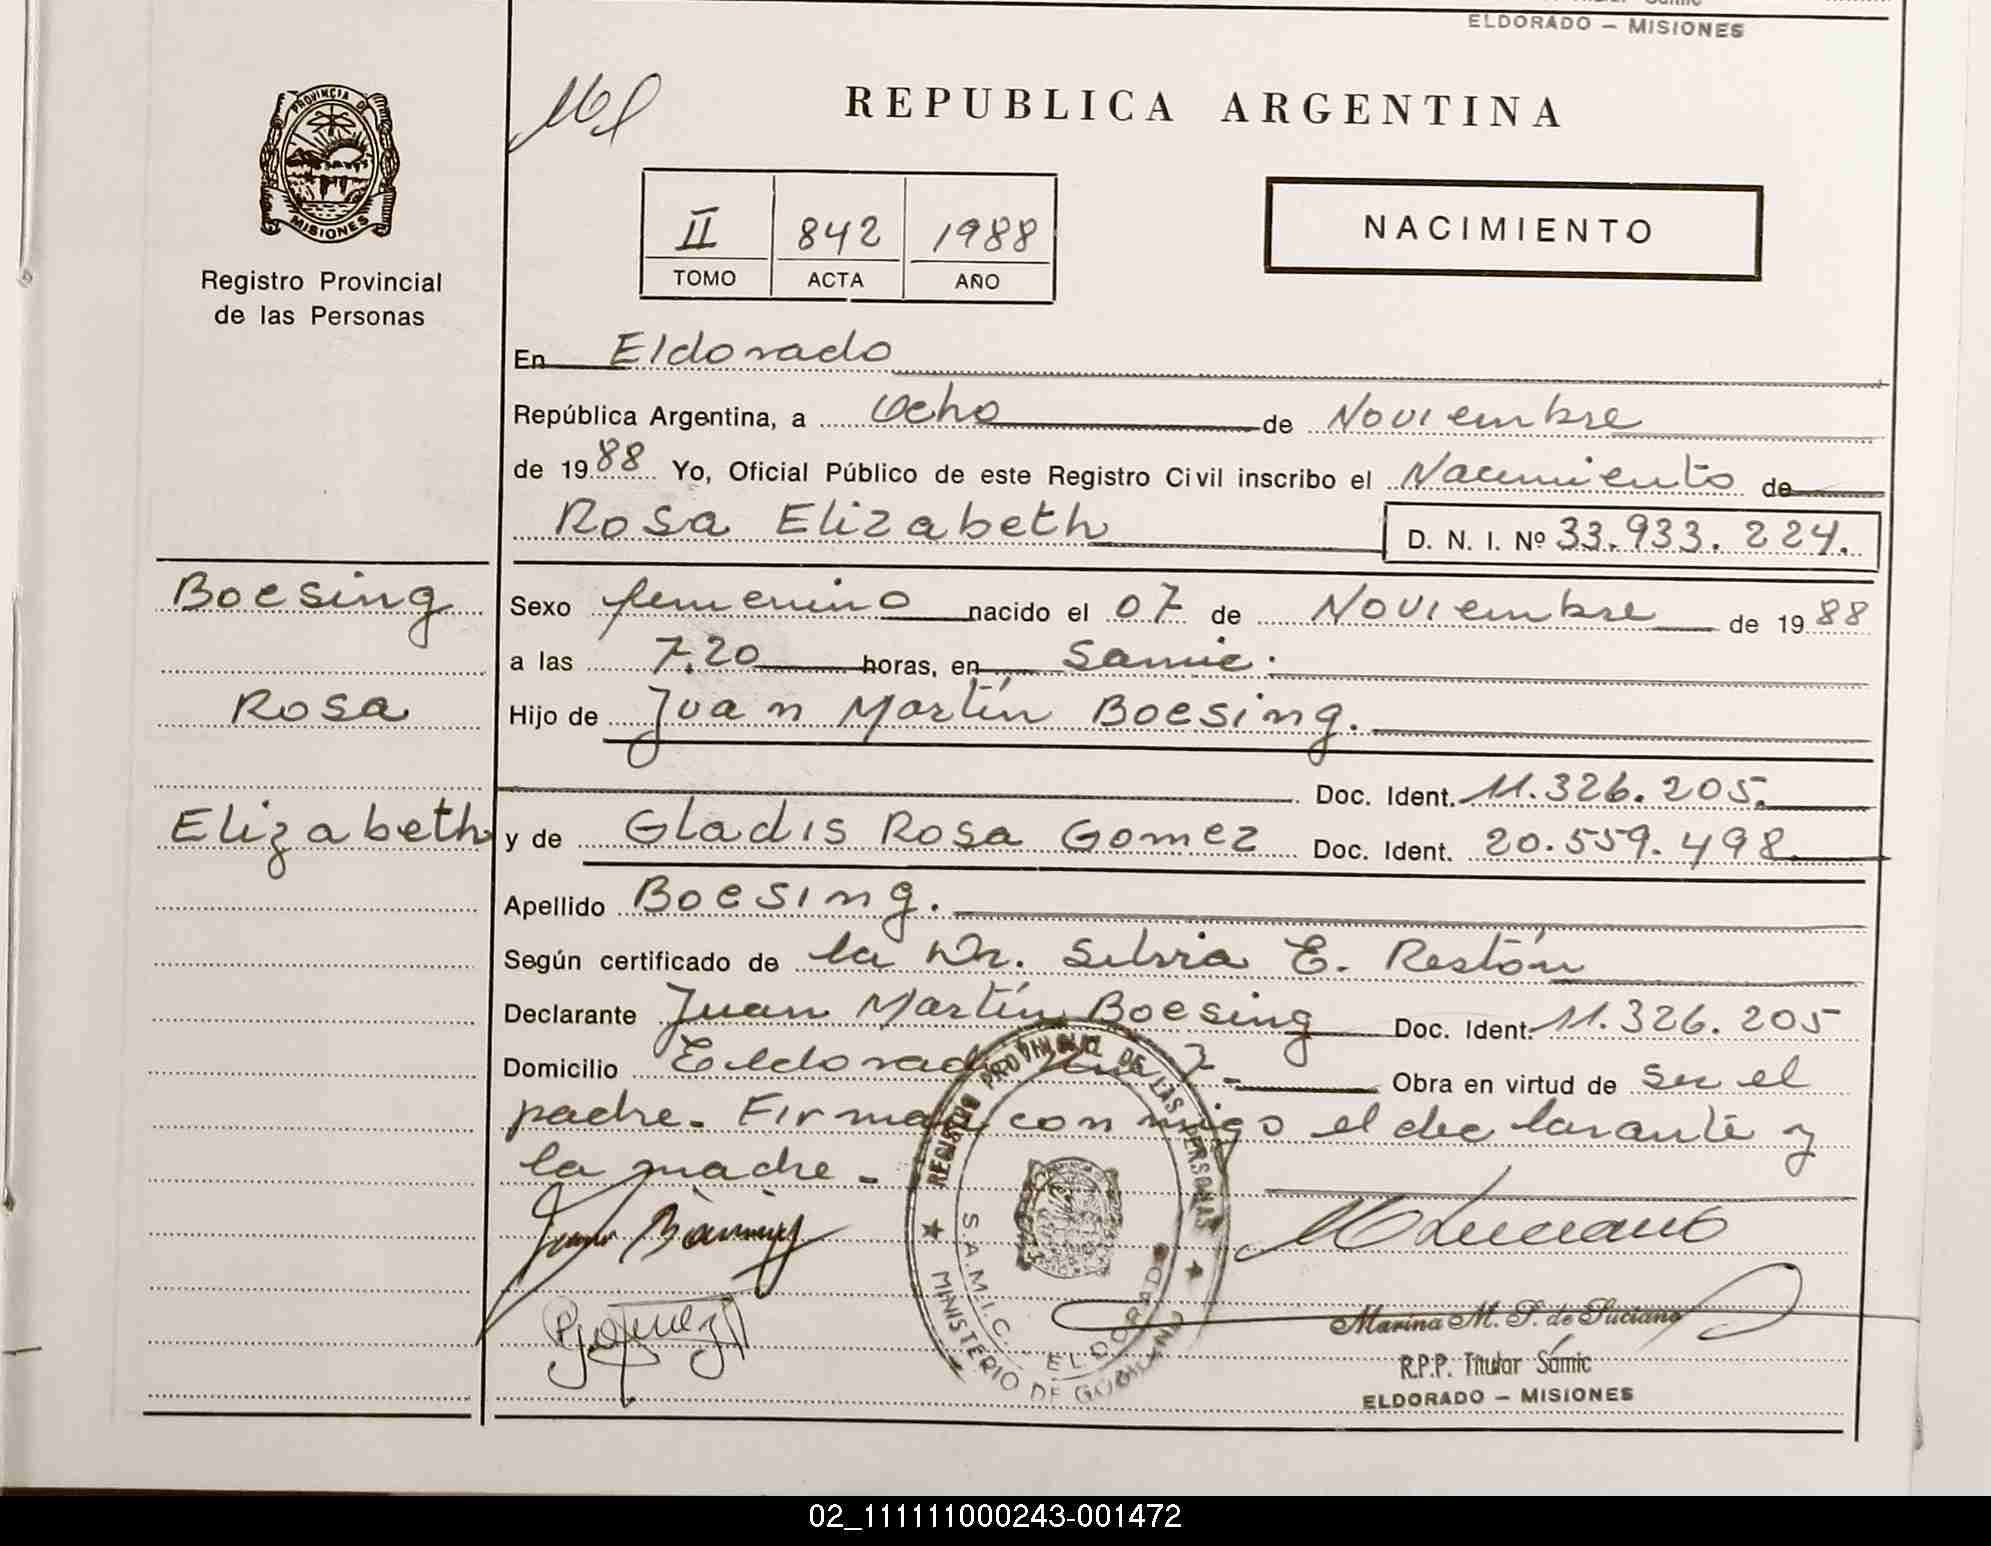 ELDORADO – MISIONES
PROVINCIA DE
MISIONES
Registro Provincial
de las Personas
REPUBLICA ARGENTINA
II 842 1988
TOMO ACTA AÑO
NACIMIENTO
En Eldorado
República Argentina, a Ocho de Noviembre
de 1988 Yo, Oficial Público de este Registro Civil inscribo el Nacimiento de
Rosa Elizabeth D. N. I. Nº 33.933.224.
Boesing
Rosa
Elizabeth
Sexo femenino nacido el 07 de Noviembre de 1988
a las 7.20 horas, en Samic.
Hijo de Juan Martín Boesing.
Doc. Ident. 11.326.205.
y de Gladis Rosa Gomez Doc. Ident. 20.559.498.
Apellido Boesing.
Según certificado de la Dr. Silvia E. Restón
Declarante Juan Martín Boesing Doc. Ident. 11.326.205
Domicilio Eldorado Km 7 Obra en virtud de ser el
padre. Firman conmigo el declarante y
la madre.
REGISTRO PROVINCIAL DE LAS PERSONAS
S.A.M.I.C. ELDORADO
MINISTERIO DE GOBIERNO
Marina M. P. de Luciano
R.P.P. Titular Sámic
ELDORADO – MISIONES
02_111111000243-001472